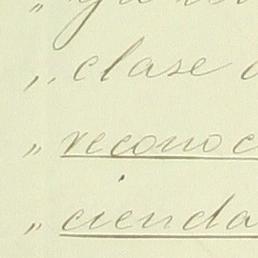 „ clase
„ reconoc
„ cienda